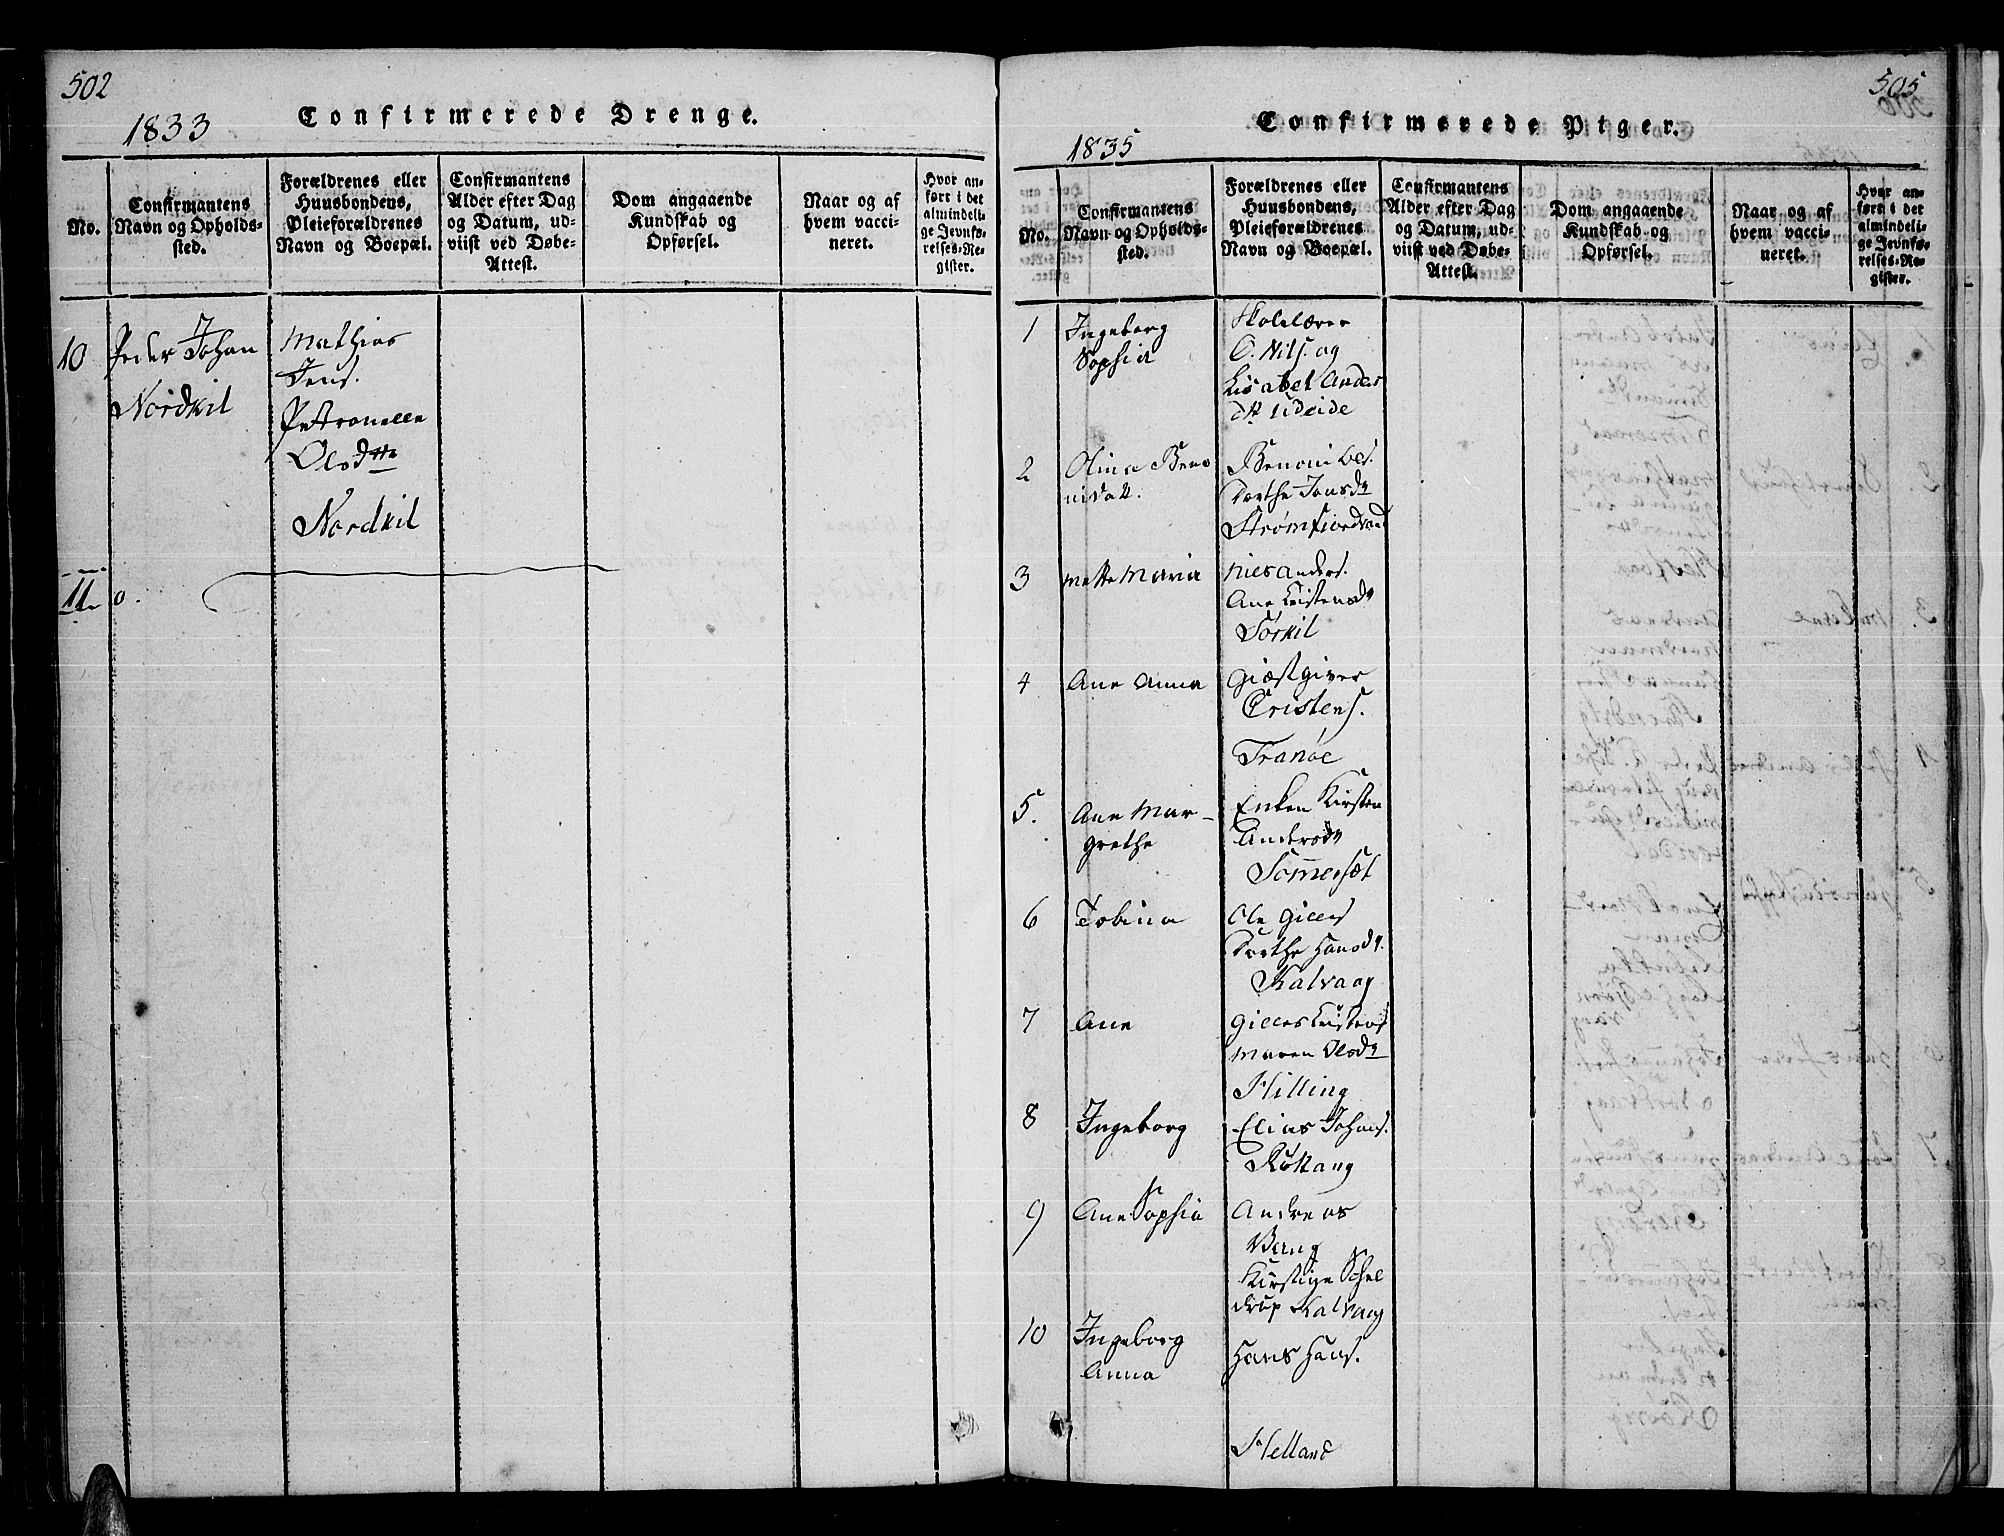 502
1833
Confirmerede Drenge.
No.
Confirmantens
Navn og Opholds-
sted.
Forældrenes eller
Huusbondens,
Pleieforældrenes
Navn og Boepæl.
Confirmantens
Alder efter Dag
og Datum, ud-
viist ved Døbe-
Attest.
Dom angaaende
Kundskab og
Opførsel.
Naar og af
hvem vacci-
neret.
Hvor an-
ført i det
almindeli-
ge Jevnfø-
relses-Re-
gister.
10
Peder Johan
Nordkil
Mathias
Jens.
Petronelle
Olsdtr
Nordkil
11
505
1835
Confirmerede Piger.
No.
Confirmantens
Navn og Opholds-
sted.
Forældrenes eller
Huusbondens,
Pleieforældrenes
Navn og Boepæl.
Confirmantens
Alder efter Dag
og Datum, ud-
viist ved Døbe-
Attest.
Dom angaaende
Kundskab og
Opførsel.
Naar og af
hvem vacci-
neret.
Hvor an-
ført i det
almindeli-
ge Jevnfø-
relses-Re-
gister.
1
Ingeborg
Sophia
Skolelærer
O. Nils. og
Lisabet Anders
dtr Udeide
2
Olina Beno
nisdtr.
Benoni
Dorthe Jonsdr
Strømfiord
3
Mette Maria
Nies Anders.
Ane
Sørkil
4
Ane Anna
Giæstgiver
Cristens.
Tranøe
5.
Ane Mar-
grethe
Enken Kirsten
Andersdr
Sommerset
6
Tobina
Ole Gilles
Dorthe Hansdr.
Kalvaag
7
Ane
Gilles
Maren Olsdr
Hilling
8
Ingeborg
Elias Johans.
9
Ane Sophia
Andreas
Berug
Schel
drup Kalvaag
10
Ingeborg
Anna
Hans Hans.
Helland